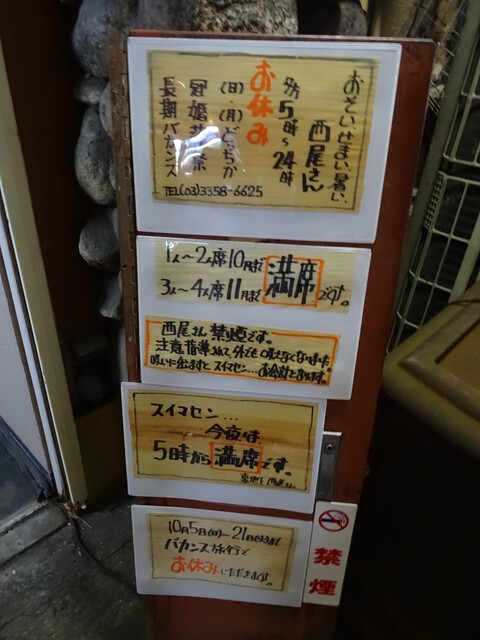 おそい、せまい、暑い、
西尾さん
夕方5時〜24時
お休み
(日)・(月)どっちか
冠婚葬祭
長期バカンス
TEL(03)3358-6625
1人〜2人席10月まで
3人〜4人席11月まで
満席です。
西尾さん禁煙です。
注意指導されて外でも吸えなくなりました。
吸いに出ますと、スイマセン…お会計となります。
スイマセン…
今夜は
5時から満席です。
10月5日(日)〜21日(火)まで
バカンス旅行で
お休みいただきます。
禁煙